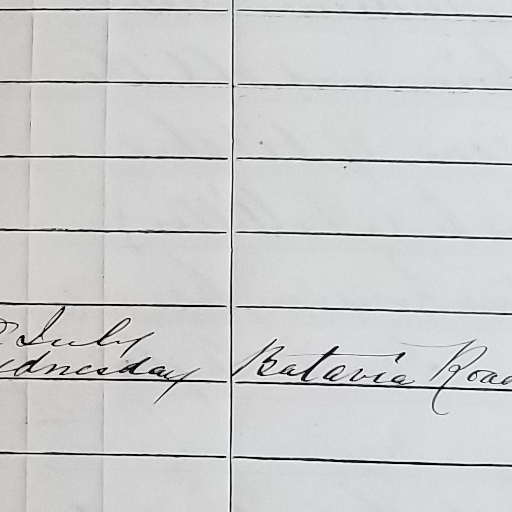 July
Wednesday Batavia Road